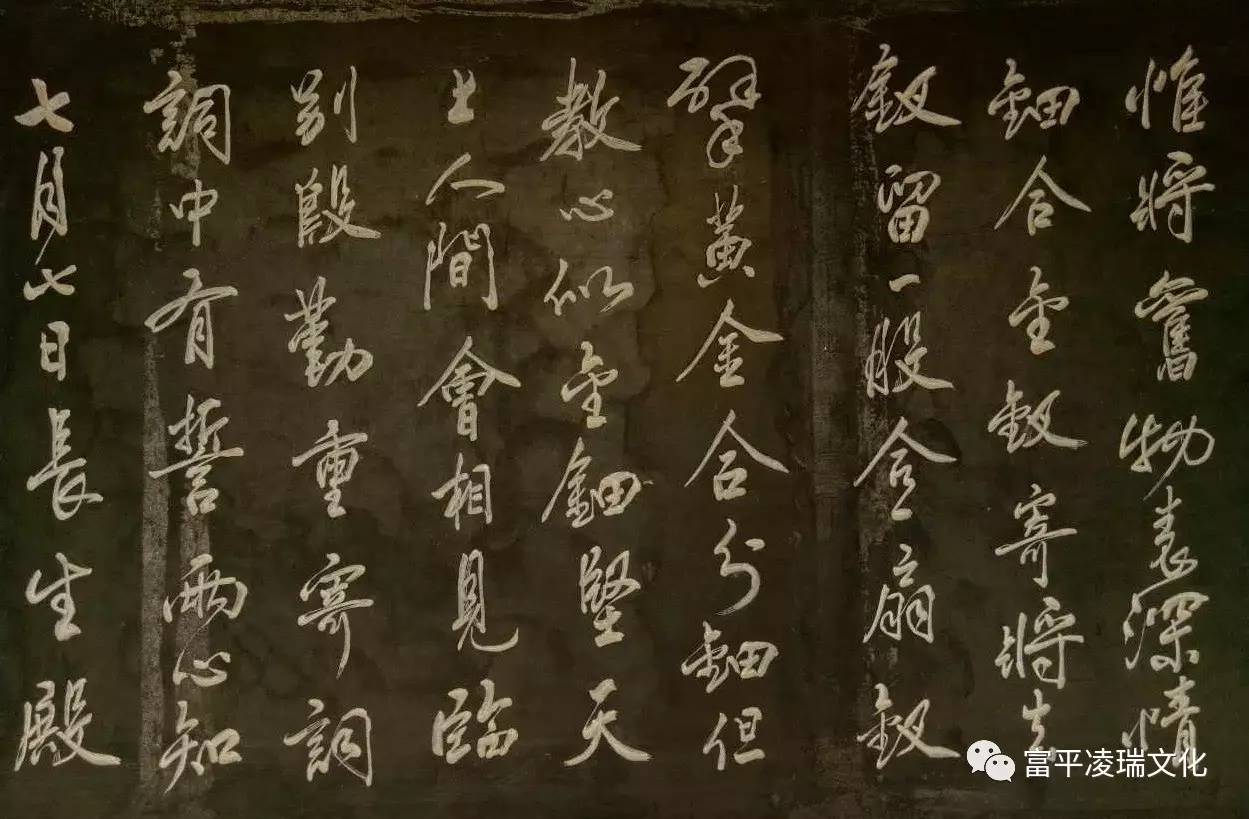 惟將舊物表深情
鈿合金釵寄將去
釵留一股合一扇釵
擘黃金合分鈿但
教心似金鈿堅天
上人間會相見臨
別殷勤重寄詞
詞中有誓兩心知
七月七日長生殿
富平凌瑞文化